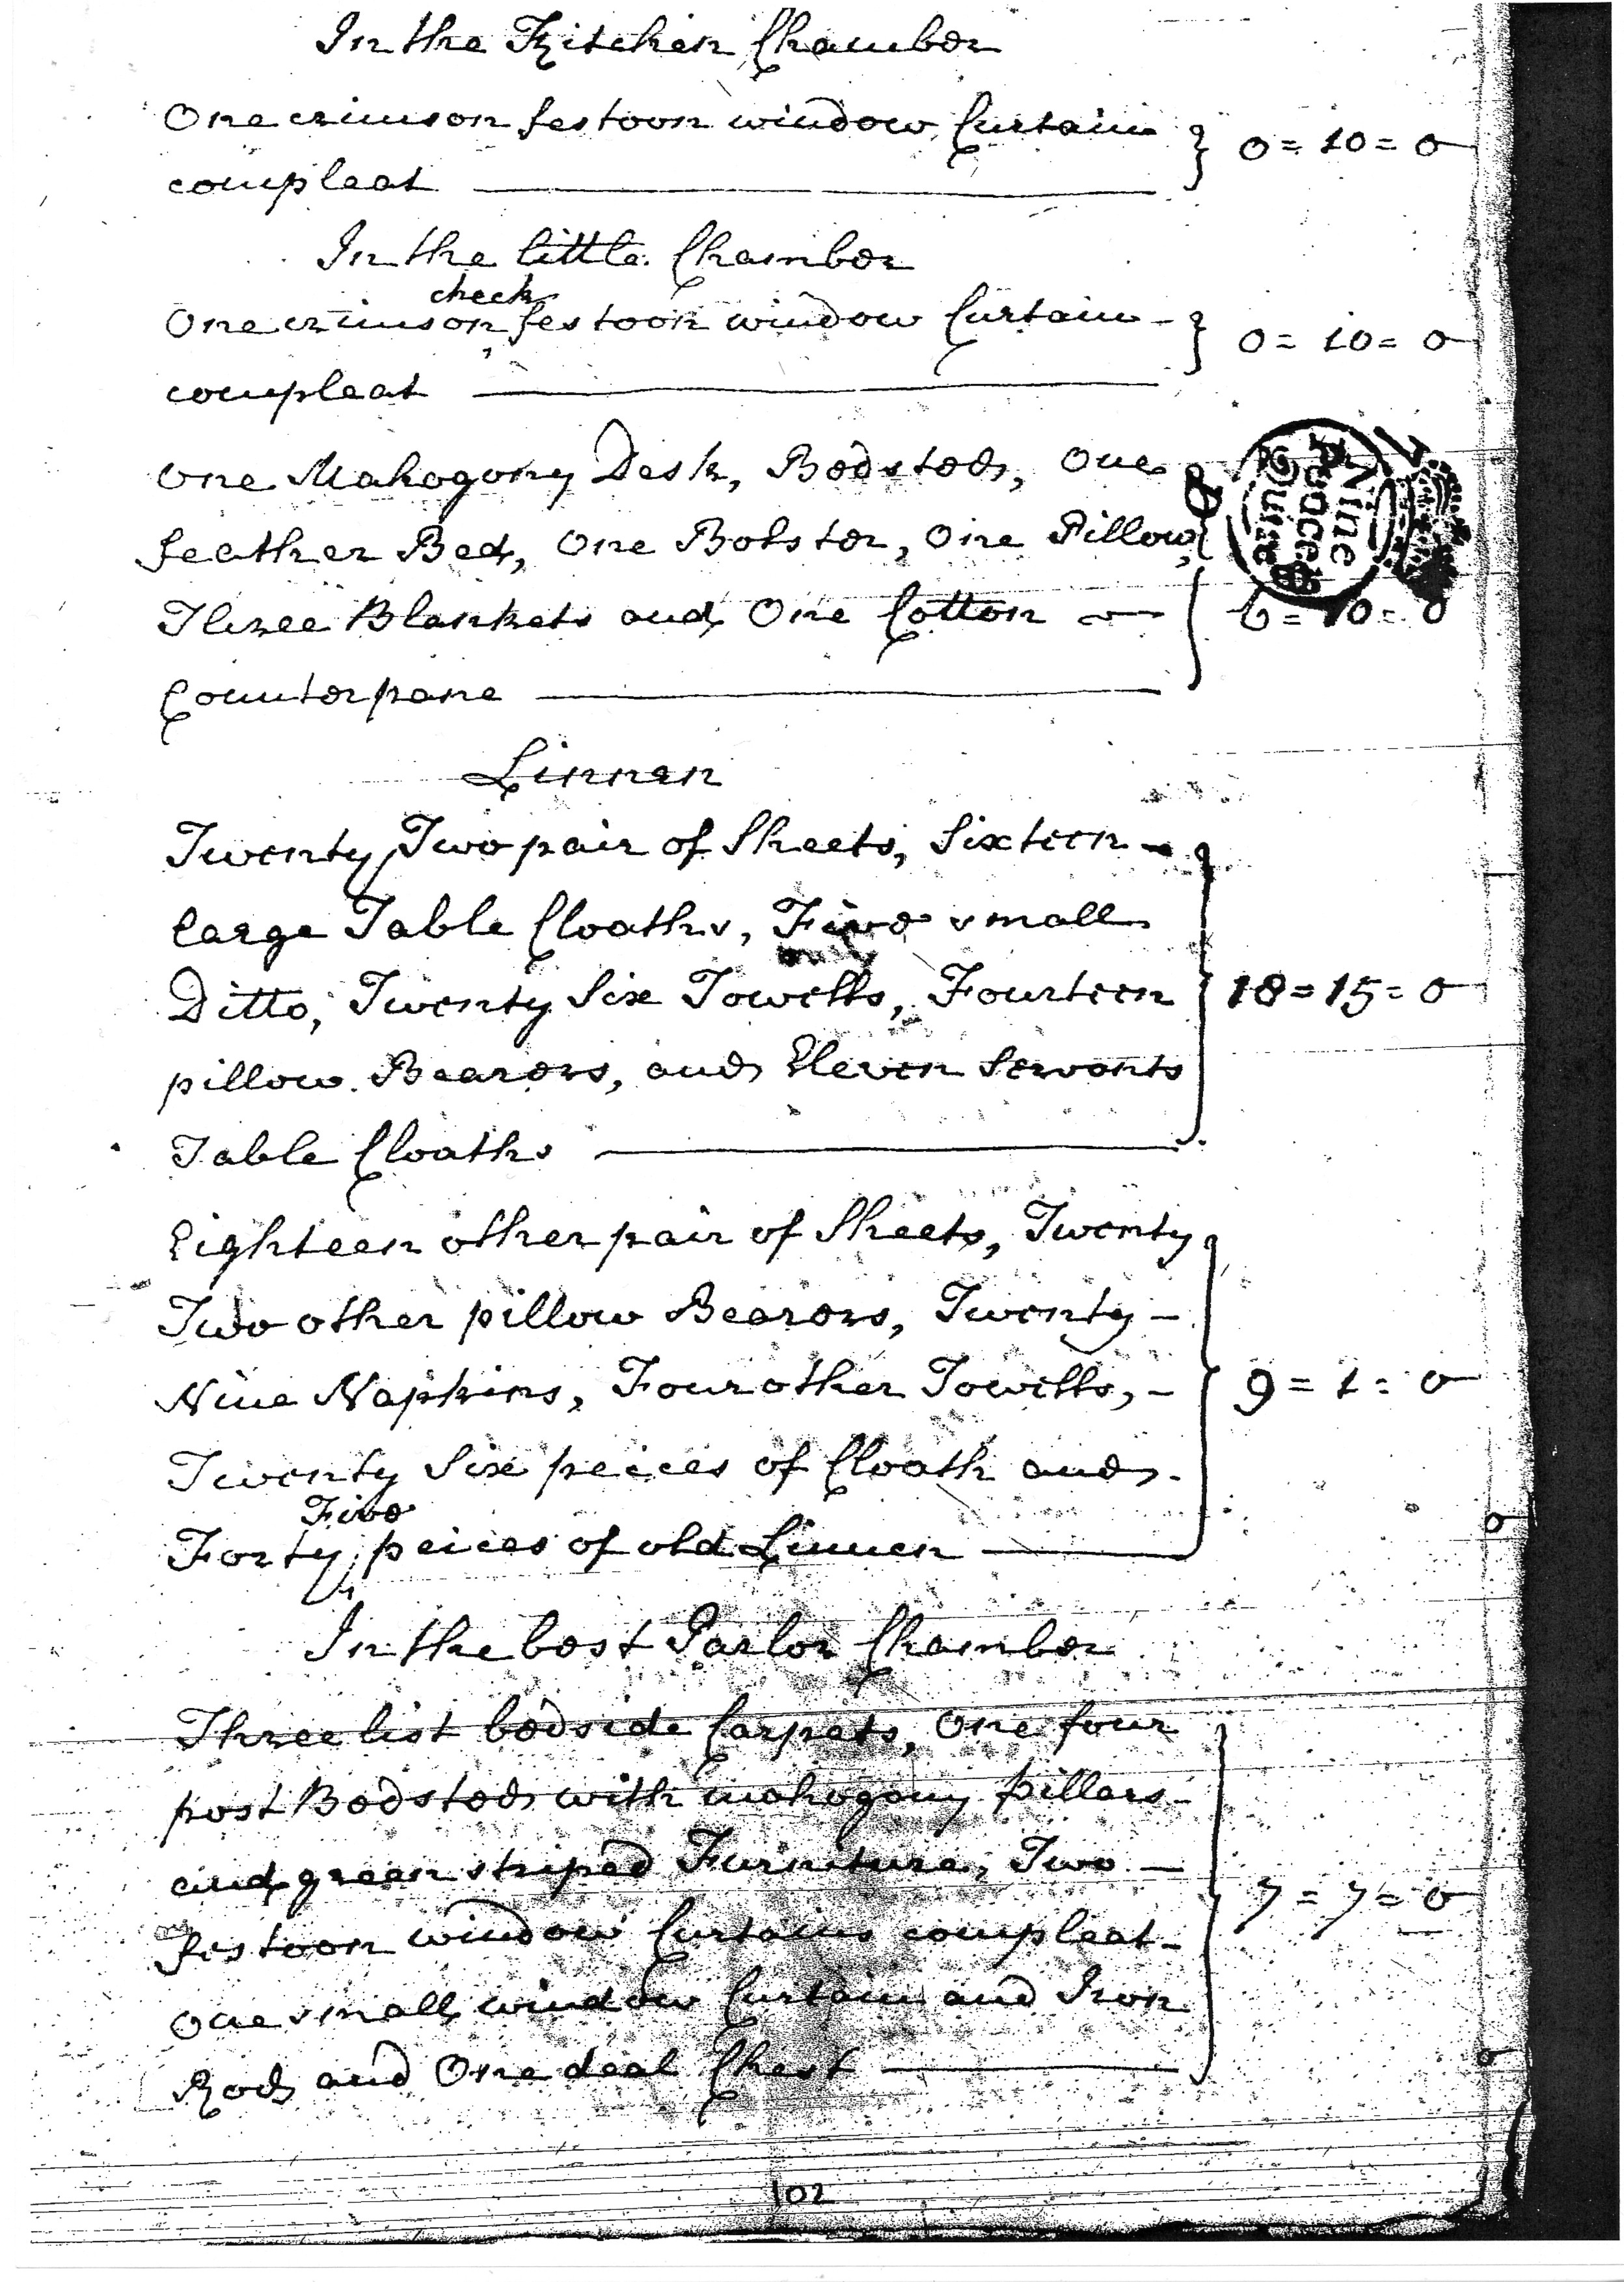 In the Kitchen Chamber
One crimson festoon window Curtain } 0 = 10 = 0
compleat
In the little Chamber
check
One crimson festoon window Curtain } 0 = 10 = 0
compleat
One Mahogony Desk, Bedsted, One
feather Bed, One Bolster, One Pillow,
Three Blankets and One Cotton = 10 = 0
Counterpane
Nine Pence Quire
Linnen
Twenty Two pair of Sheets, Sixteen
large Table Cloaths, Five small
Ditto, Twenty Six Towells, Fourteen } 18 = 15 = 0
pillow Bearers, and Eleven Servants
Table Cloaths
Eighteen other pair of Sheets, Twenty
Two other pillow Bearers, Twenty
Nine Napkins, Four other Towells, } 9 = 1 = 0
Twenty Six peices of Cloath and
Five
Forty peices of old Linnen
In the best Parlor Chamber
Three list bedside Carpets, One four
post Bedsted with mahogany pillars
and green striped Furniture, Two } 7 = 7 = 0
festoon window Curtains compleat
One small window Curtain and Iron
Rod and One deal Chest
102